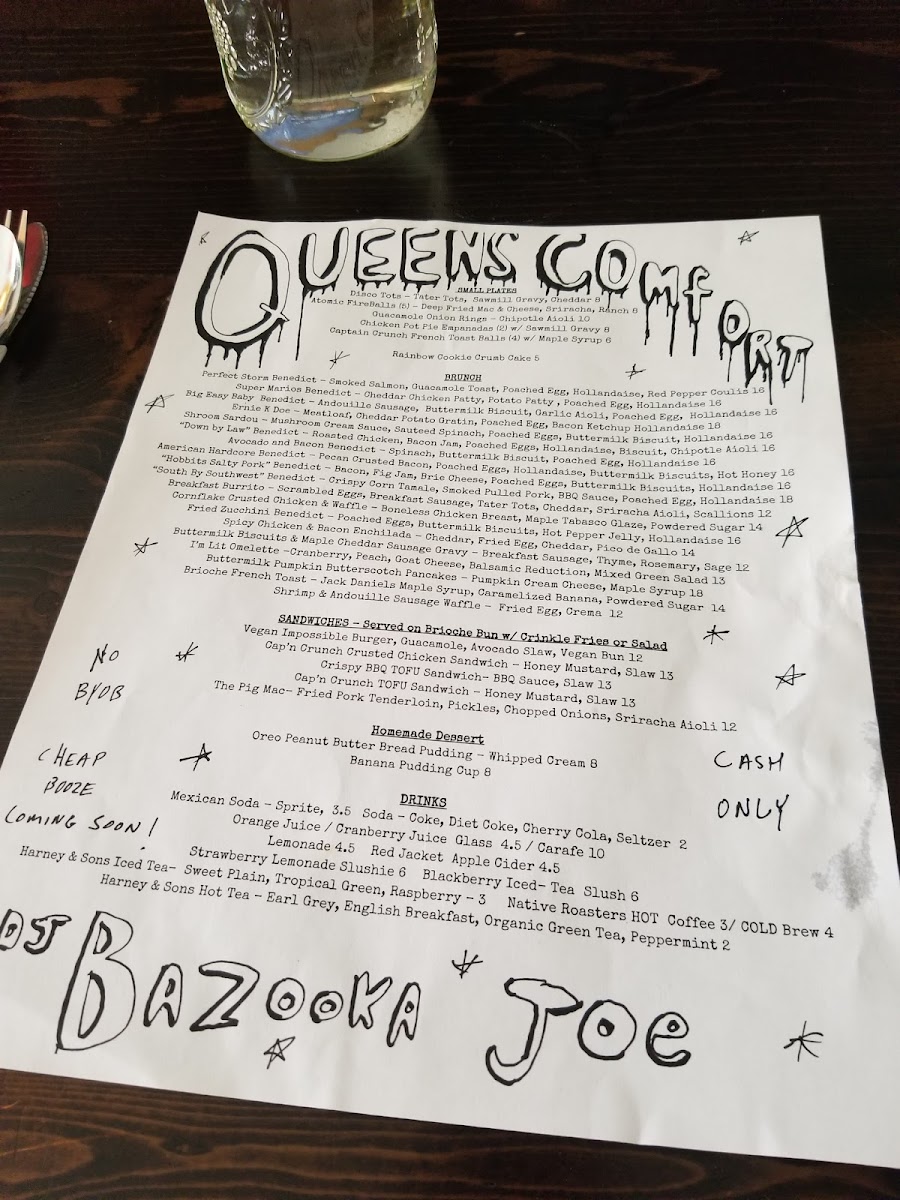 QUEENS COMfORT
SMALL PLATES
Disco Tots - Tater Tots, Sawmill Gravy, Cheddar 8
Atomic FireBalls (5) - Deep Fried Mac & Cheese, Sriracha, Ranch 8
Guacamole Onion Rings - Chipotle Aioli 10
Chicken Pot Pie Empanadas (2) w/ Sawmill Gravy 8
Captain Crunch French Toast Balls (4) w/ Maple Syrup 6
Rainbow Cookie Crumb Cake 5
BRUNCH
Perfect Storm Benedict - Smoked Salmon, Guacamole Toast, Poached Egg, Hollandaise, Red Pepper Coulis 16
Super Marios Benedict - Cheddar Chicken Patty, Potato Patty , Poached Egg, Hollandaise 16
Big Easy Baby Benedict - Andouille Sausage, Buttermilk Biscuit, Garlic Aioli, Poached Egg, Hollandaise 16
Ernie K Doe - Meatloaf, Cheddar Potato Gratin, Poached Egg, Bacon Ketchup Hollandaise 18
Shroom Sardou - Mushroom Cream Sauce, Sauteed Spinach, Poached Eggs, Buttermilk Biscuit, Hollandaise 16
"Down by Law" Benedict - Roasted Chicken, Bacon Jam, Poached Eggs, Hollandaise, Biscuit, Chipotle Aioli 16
Avocado and Bacon Benedict - Spinach, Buttermilk Biscuit, Poached Egg, Hollandaise 16
American Hardcore Benedict - Pecan Crusted Bacon, Poached Eggs, Hollandaise, Buttermilk Biscuits, Hot Honey 16
"Hobbits Salty Pork" Benedict - Bacon, Fig Jam, Brie Cheese, Poached Eggs, Buttermilk Biscuits, Hollandaise 16
"South By Southwest" Benedict - Crispy Corn Tamale, Smoked Pulled Pork, BBQ Sauce, Poached Egg, Hollandaise 18
Breakfast Burrito - Scrambled Eggs, Breakfast Sausage, Tater Tots, Cheddar, Sriracha Aioli, Scallions 12
Cornflake Crusted Chicken & Waffle - Boneless Chicken Breast, Maple Tabasco Glaze, Powdered Sugar 14
Fried Zucchini Benedict - Poached Eggs, Buttermilk Biscuits, Hot Pepper Jelly, Hollandaise 16
Spicy Chicken & Bacon Enchilada - Cheddar, Fried Egg, Cheddar, Pico de Gallo 14
Buttermilk Biscuits & Maple Cheddar Sausage Gravy - Breakfast Sausage, Thyme, Rosemary, Sage 12
I'm Lit Omelette -Cranberry, Peach, Goat Cheese, Balsamic Reduction, Mixed Green Salad 13
Buttermilk Pumpkin Butterscotch Pancakes - Pumpkin Cream Cheese, Maple Syrup 18
Brioche French Toast - Jack Daniels Maple Syrup, Caramelized Banana, Powdered Sugar 14
Shrimp & Andouille Sausage Waffle - Fried Egg, Crema 12
SANDWICHES - Served on Brioche Bun w/ Crinkle Fries or Salad
Vegan Impossible Burger, Guacamole, Avocado Slaw, Vegan Bun 12
Cap'n Crunch Crusted Chicken Sandwich - Honey Mustard, Slaw 13
Crispy BBQ TOFU Sandwich- BBQ Sauce, Slaw 13
Cap'n Crunch TOFU Sandwich - Honey Mustard, Slaw 13
The Pig Mac- Fried Pork Tenderloin, Pickles, Chopped Onions, Sriracha Aioli 12
NO
BYOB
Homemade Dessert
Oreo Peanut Butter Bread Pudding - Whipped Cream 8
Banana Pudding Cup 8
CHEAP
BOOZE
COMING SOON!
CASH
ONLY
DRINKS
Mexican Soda - Sprite, 3.5 Soda - Coke, Diet Coke, Cherry Cola, Seltzer 2
Orange Juice / Cranberry Juice Glass 4.5 / Carafe 10
Lemonade 4.5 Red Jacket Apple Cider 4.5
Strawberry Lemonade Slushie 6 Blackberry Iced- Tea Slush 6
Harney & Sons Iced Tea- Sweet Plain, Tropical Green, Raspberry - 3 Native Roasters HOT Coffee 3/ COLD Brew 4
Harney & Sons Hot Tea - Earl Grey, English Breakfast, Organic Green Tea, Peppermint 2
DJ BAZOOKA JOe